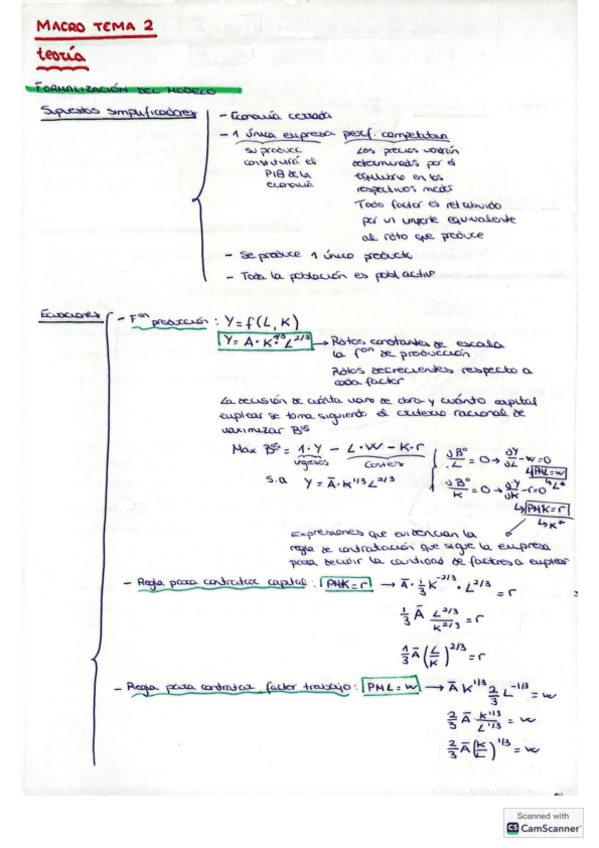 MACRO TEMA 2
teoría
FORMALIZACIÓN DEL MODELO
Supuestos simplificadores
- Economía cerrada
- 1 única empresa perf. competitiva
su produce
constituirá el
PIB de la
economía
Los precios vendrán
determinados por el
equilibrio en los
respectivos
Todo factor es retribuido
por un importe equivalente
al rdto que produce
- Se produce 1 único producto
- Toda la población es pobl. activa
Ecuaciones
- Fᵒⁿ producción : Y = f(L, K)
Y = A · K^1/3 L^2/3 → Rdtos constantes de escala
la fᵒⁿ de producción
Rdtos decrecientes respecto a
cada factor
La decisión de cuánta mano de obra y cuánto capital
emplear se toma siguiendo el criterio racional de
maximizar Bᵒˢ
Max Bᵒˢ = 1·Y - L·W - K·r
ingresos costes
s.a Y = Ā·K^1/3 L^2/3
∂Bº/L = 0 → ∂Y/∂L - w = 0
↳ PML = w
↳ L*
∂Bº/K = 0 → ∂Y/∂K - r = 0
↳ PMK = r
↳ K*
Expresiones que evidencian la
regla de contratación que sigue la empresa
para decidir la cantidad de factores a emplear
- Regla para contratar capital : PMK = r → Ā · 1/3 K^-2/3 · L^2/3 = r
1/3 Ā L^2/3 / K^2/3 = r
1/3 Ā (L/K)^2/3 = r
- Regla para contratar factor trabajo : PML = w → Ā K^1/3 2/3 L^-1/3 = w
2/3 Ā · K^1/3 / L^1/3 = w
2/3 Ā (K/L)^1/3 = w
Scanned with
CS CamScanner